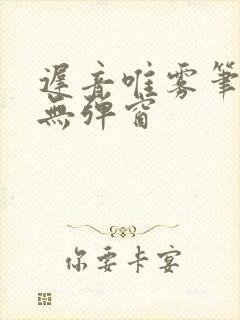 遲音唯雾筆
無弹窗
你要卡宴